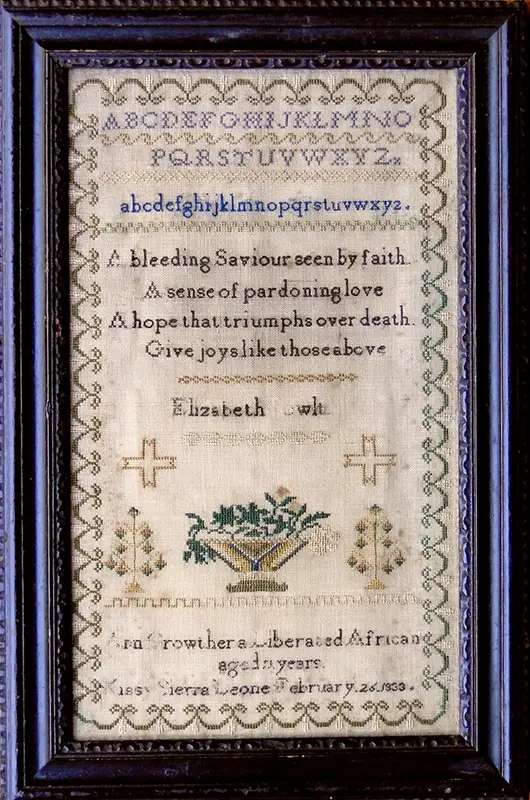 ABCDEFGHIJKLMNO
PQRSTUVWXYZ
abcdefghijklmnopqrstuvwxyz.
A bleeding Saviour seen by faith.
A sense of pardoning love
A hope that triumphs over death.
Give joys like those above
Elizabeth
Ann Growther a Liberated African
aged years.
Kissy Sierra Leone February. 26. 1833.